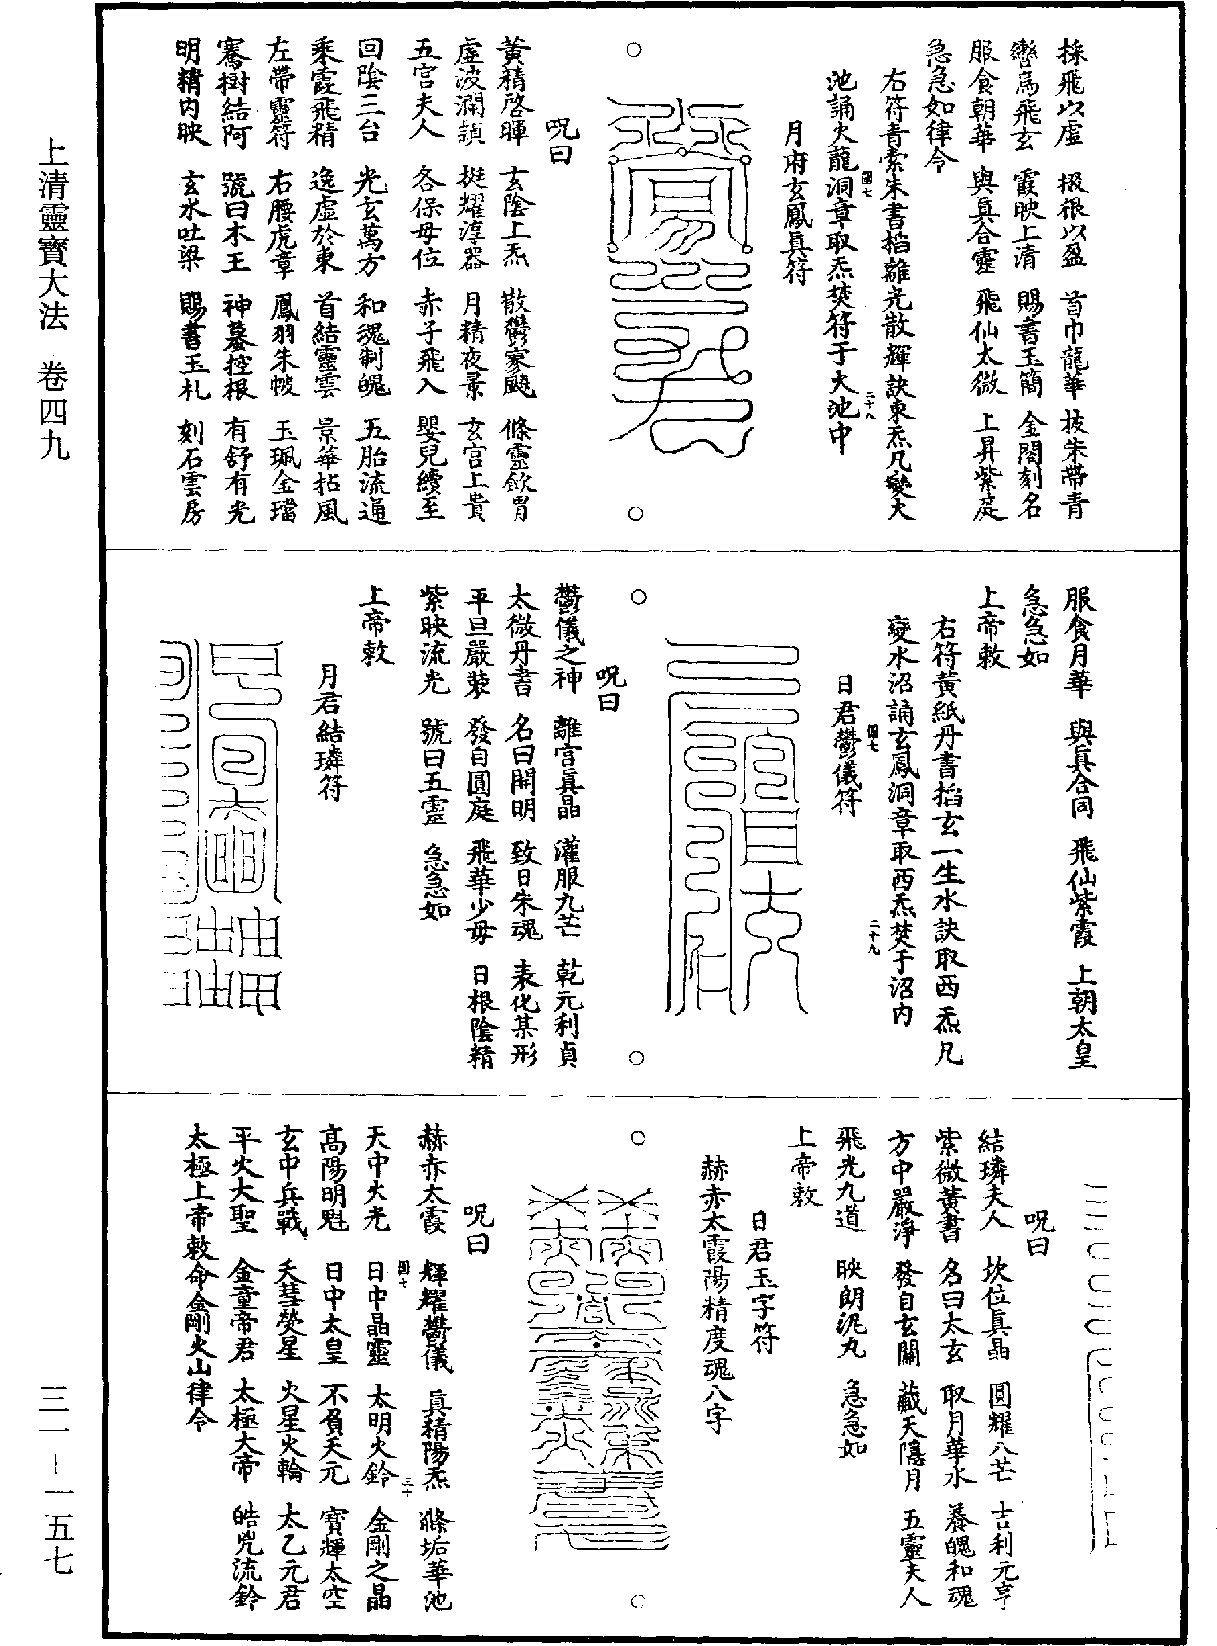 上清靈寶大法　卷四九
三一—一五七
採飛以虛　　　首巾龍華　披朱帶青
轡爲飛玄　霞映上清　賜書玉簡　金閣刻名
服食朝華　與眞合靈　飛仙太微　上昇紫庭
急急如律令
右符青索朱書掐離光散輝訣東炁凡變火
池誦火龍洞章取炁焚符于火池中
月府玄鳳眞符
呪曰
黃精啓暉　玄陰上炁　散鬱寥飈　條靈斂胃
虛波瀾頡　挺耀淳器　月精夜景　玄宮上貴
五宮夫人　各保母位　赤子飛入　嬰兒續至
回陰三台　光玄萬方　和魂制魄　五胎流通
乘霞飛精　逸虛於東　首結靈雲　景華拈風
左帶靈符　右腰虎章　鳳羽朱帔　玉珮金璫
騫樹結阿　號曰木王　神蟇控根　有舒有光
明精內映　玄水吐梁　賜書玉札　刻石雲房
服食月華　與眞合同　飛仙紫霞　上朝太皇
急急如
上帝敕
右符黃紙丹書掐玄一生水訣取西炁凡
變水沼誦玄鳳洞章取西炁焚于沼內
日君鬱儀符
呪曰
鬱儀之神　離宮眞晶　灌服九芒　乾元利貞
太微丹書　名曰開明　致日朱魂　表化某形
平旦嚴裝　發自圓庭　飛華少母　日根陰精
紫映流光　號曰五靈　急急如
上帝敕
月君結璘符
呪曰
結璘夫人　坎位眞晶　圓耀八芒　吉利元亨
紫微黃書　名曰太玄　取月華水　養魄和魂
方中嚴淨　發自玄關　藏天隱月　五靈夫人
飛光九道　映朗泥丸　急急如
上帝敕
日君玉字符
赫赤太霞陽精度魂八字
呪曰
赫赤太霞　輝耀鬱儀　眞精陽炁　滌垢華池
天中火光　日中晶靈　太明火鈴　金剛之晶
高陽明魁　日中太皇　不負天元　寶輝太空
玄中兵戰　夭彗熒星　火星火輪　太乙元君
平火大聖　金童帝君　太極大帝　皓兇流鈴
太極上帝敕命金剛火山律令